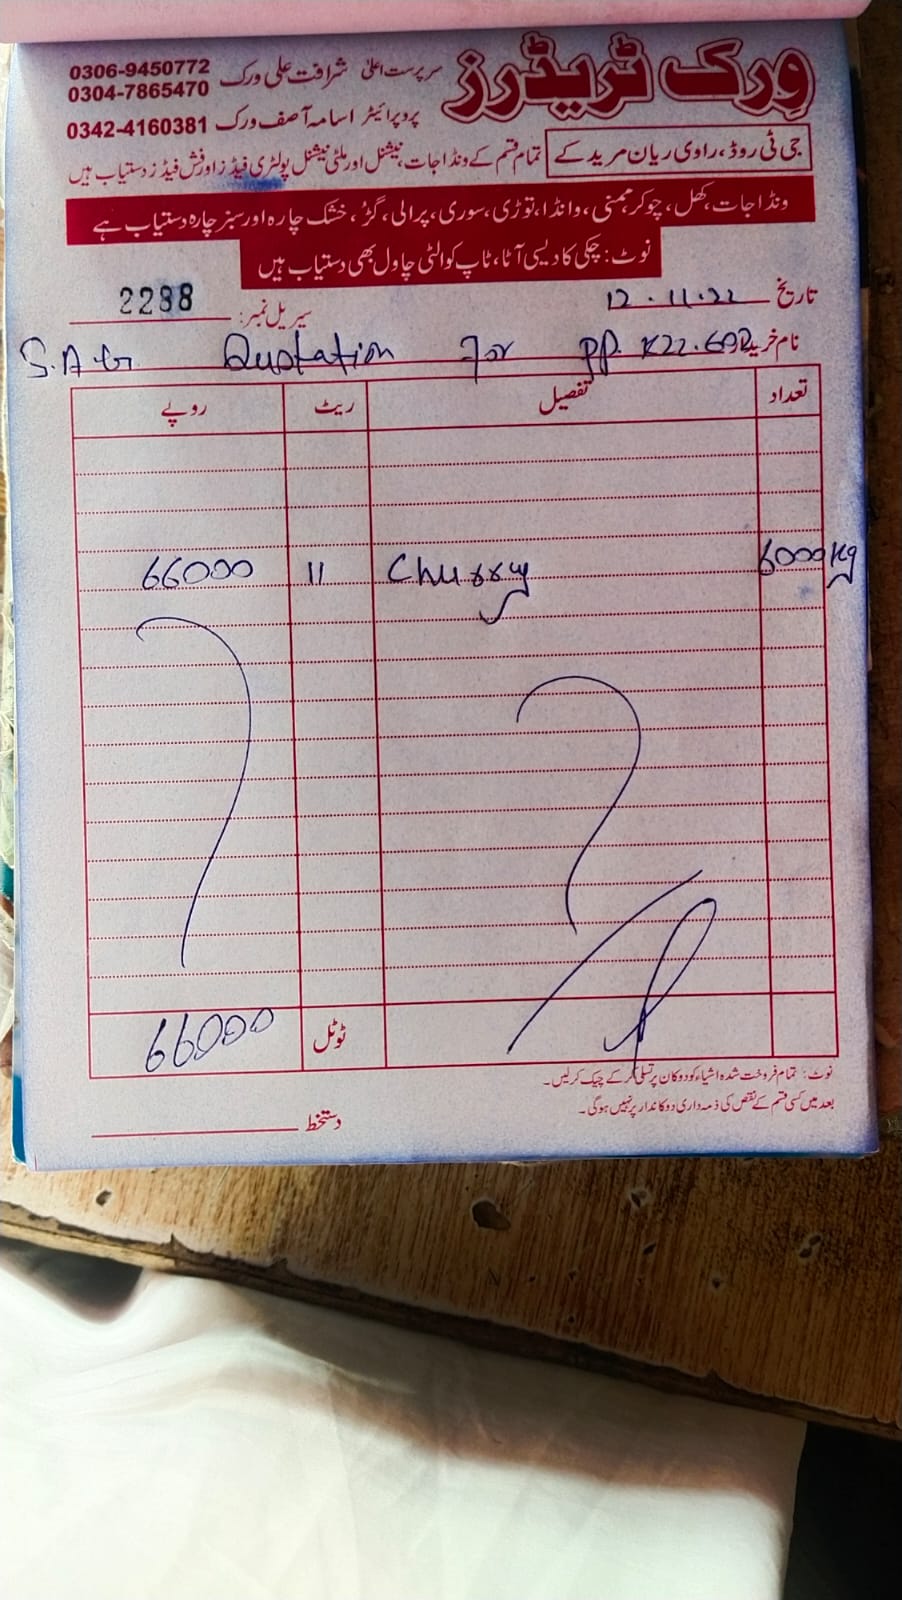 ورک ٹریڈرز
سرپرست اعلیٰ شرافت علی ورک 0306-9450772
0304-7865470
پروپرائیٹر اسامہ آصف ورک 0342-4160381
جی ٹی روڈ، راوی ریان مریدکے
تمام قسم کے ونڈا جات، نیشنل اور ملٹی نیشنل پولٹری فیڈز اور فش فیڈز دستیاب ہیں
ونڈا جات، کھل، چوکر، ممنی، وانڈا، توڑی، سوری، پرالی، گڑ، خشک چارہ اور سبز چارہ دستیاب ہے
نوٹ: چکی کا دیسی آٹا، ٹاپ کوالٹی چاول بھی دستیاب ہیں
تاریخ 12.11.22 سیریل نمبر: 2288
نام خریدار
Quotation for PP.
تعداد تفصیل ریٹ روپے
6000 Kg Churry 11 66000
ٹوٹل 66000
نوٹ: تمام فروخت شدہ اشیاء کو دوکان پر تسلی کر کے چیک کر لیں۔
بعد میں کسی قسم کے نقص کی ذمہ داری دوکاندار پر نہیں ہوگی۔
دستخط